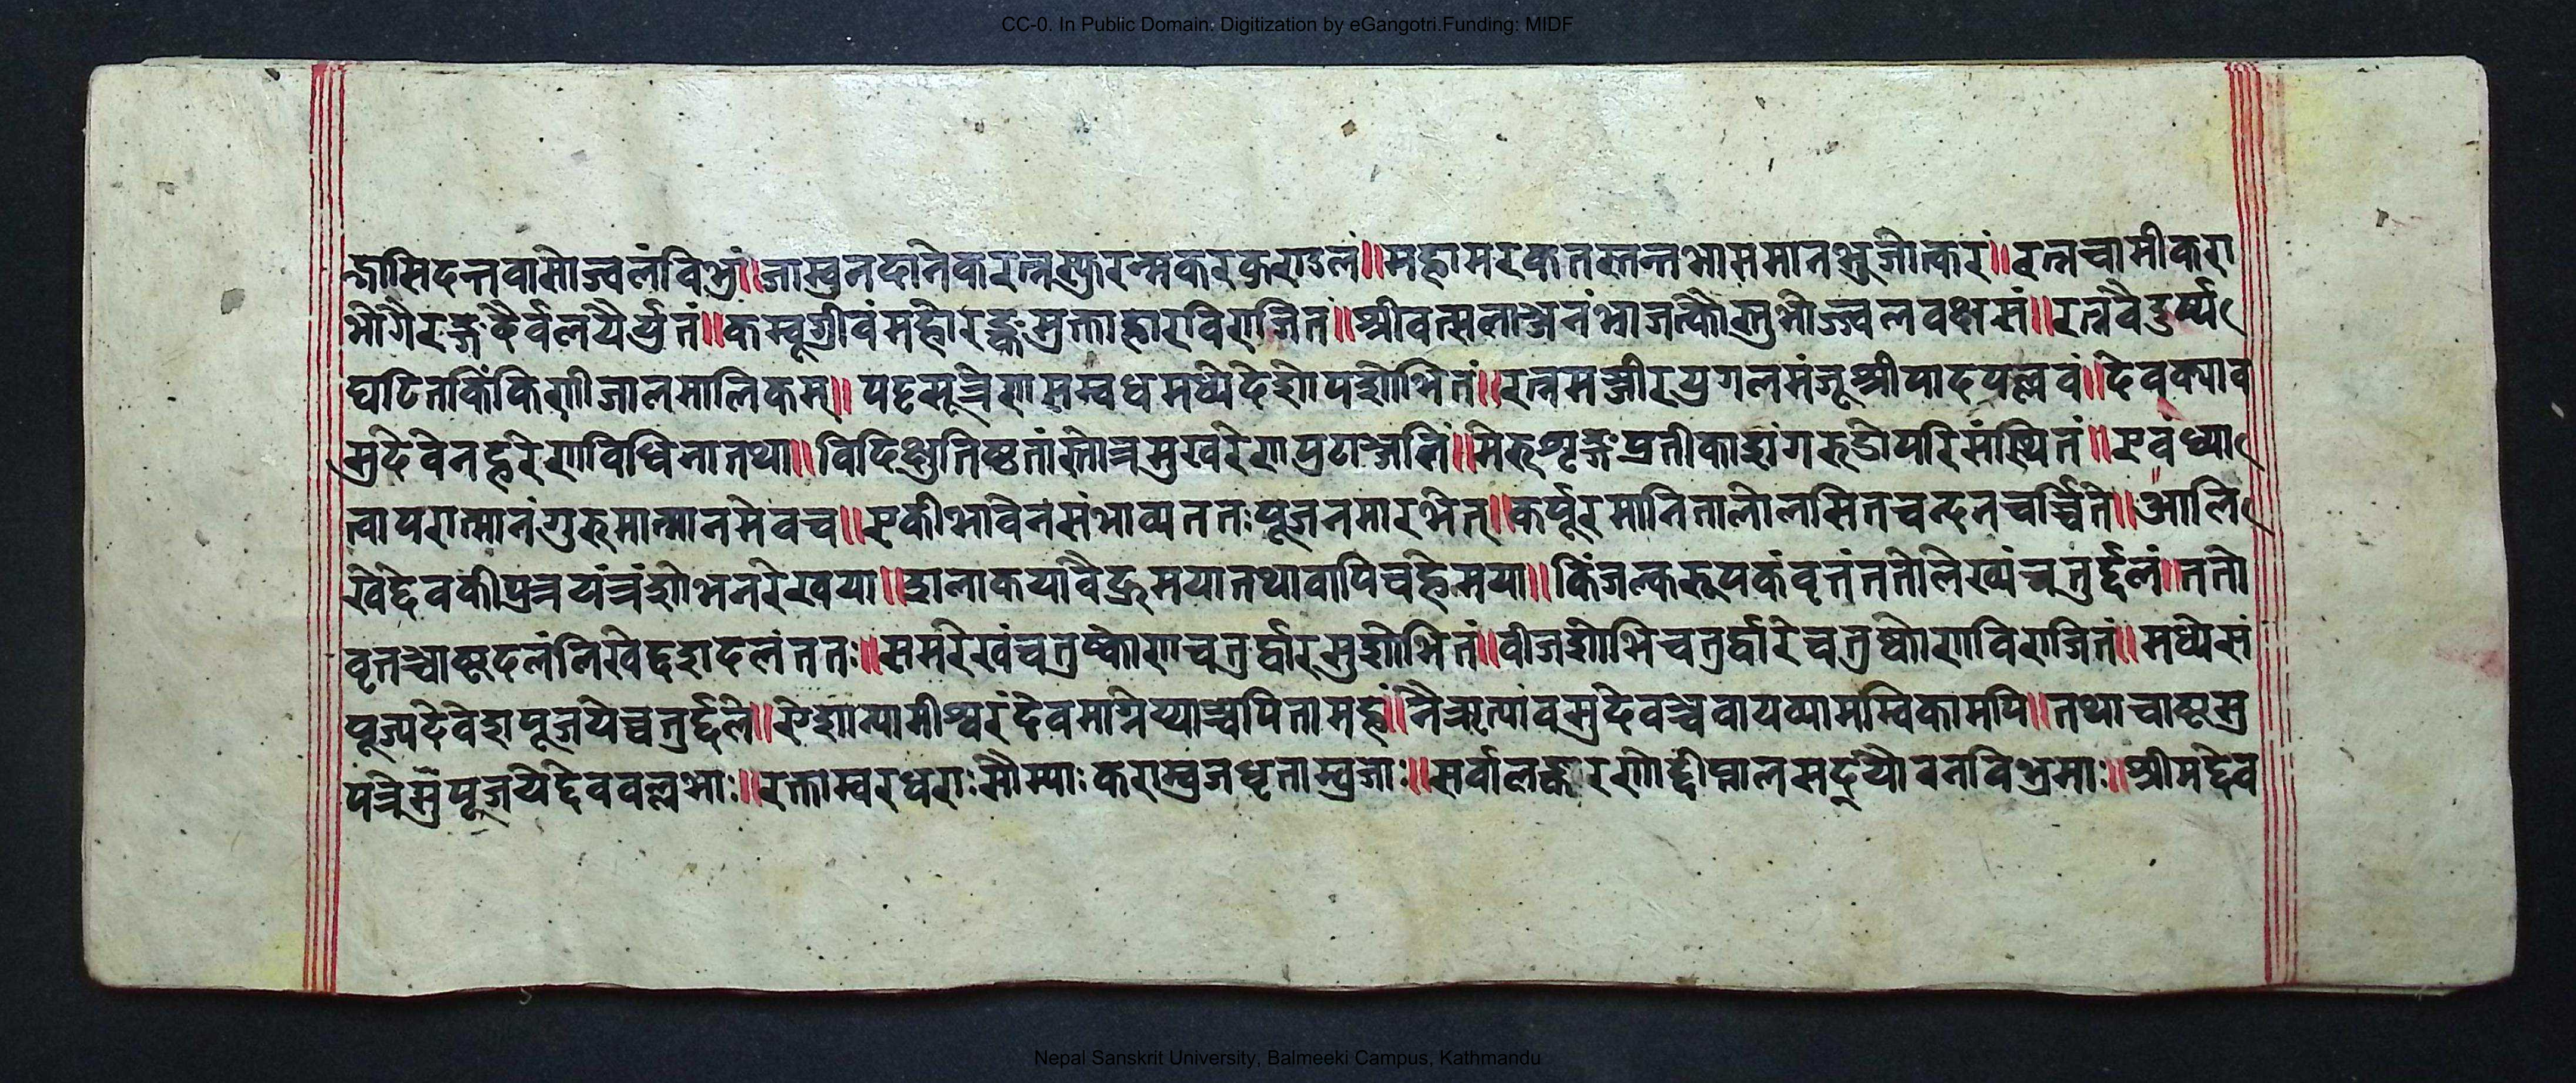 CC-0. In Public Domain. Digitization by eGangotri.Funding: MIDF
न्द्रासिदन्तवासोज्वलंविभुं॥जाम्बुनदानेकरत्नस्फुरन्मकरकुराडलं॥महामरकतस्तन्तभासमानभुजोत्करं॥रत्नचामीकरा
भौगैरङ्गदैर्वलयैर्य्युतं॥कम्बूग्रीवंमहोरङ्कमुक्ताहारविराजितं॥श्रीवत्सलाञ्जनंभ्राजत्कौस्तुभोज्ज्वलवक्षसं॥रत्नवैदुर्ष्य
घटितकिंकिणीजालमालिकम्॥पट्टसूत्रेणसम्बधमध्येदेशोपशोभितं॥रत्नमञ्जीरयुगलमंजूश्रीपादपल्लवं॥देवक्याव
सुदेवेनहरेणविधिनातथा॥विदिक्षुतिष्ठतांस्तोत्रमुखरेणप्रटाञ्जलिं॥मेरुशृङ्गप्रतीकाशंगरुडोपरिसंस्थितं॥एवंध्या
त्वापरात्मानंगुरुमात्मानमेवच॥एकीभावेनसंभाव्यततःपूजनमारभेत्॥कर्पूरमानितालोलसितचन्दनचर्च्चिते॥आलि
खेद्देवकीपुत्रयंत्रंशोभनरेखया॥शलाकयावैद्रुमयातथावापिचहेमया॥किंजल्करूपकंवृत्तंततोलिख्यंचतुर्द्दलं॥ततो
वृतञ्चाष्टदलंलिखेद्वदशदलंततः॥समरेखंचतुष्कोणचतुर्द्वारसुशोभितं॥वीजशोभिचतुर्द्वारेचतुष्कोणविराजितं॥मध्येसं
पूज्यदेवेशपूजयेच्चतुर्द्दले॥ऐशान्यामीश्वरंदेवमाग्नेय्याञ्चपितामहं॥नैऋत्यांवसुदेवञ्चवायव्यामम्बिकामपि॥तथाचाष्टसु
पत्रेसुसंपूजयेद्देववल्लभाः॥रक्ताम्बरधराःसौम्याःकराम्बुजधृताम्बुजाः॥सर्वालङ्काररणोद्दीप्तालसद्यौवनविभ्रमाः॥श्रीमद्देव
Nepal Sanskrit University, Balmeeki Campus, Kathmandu